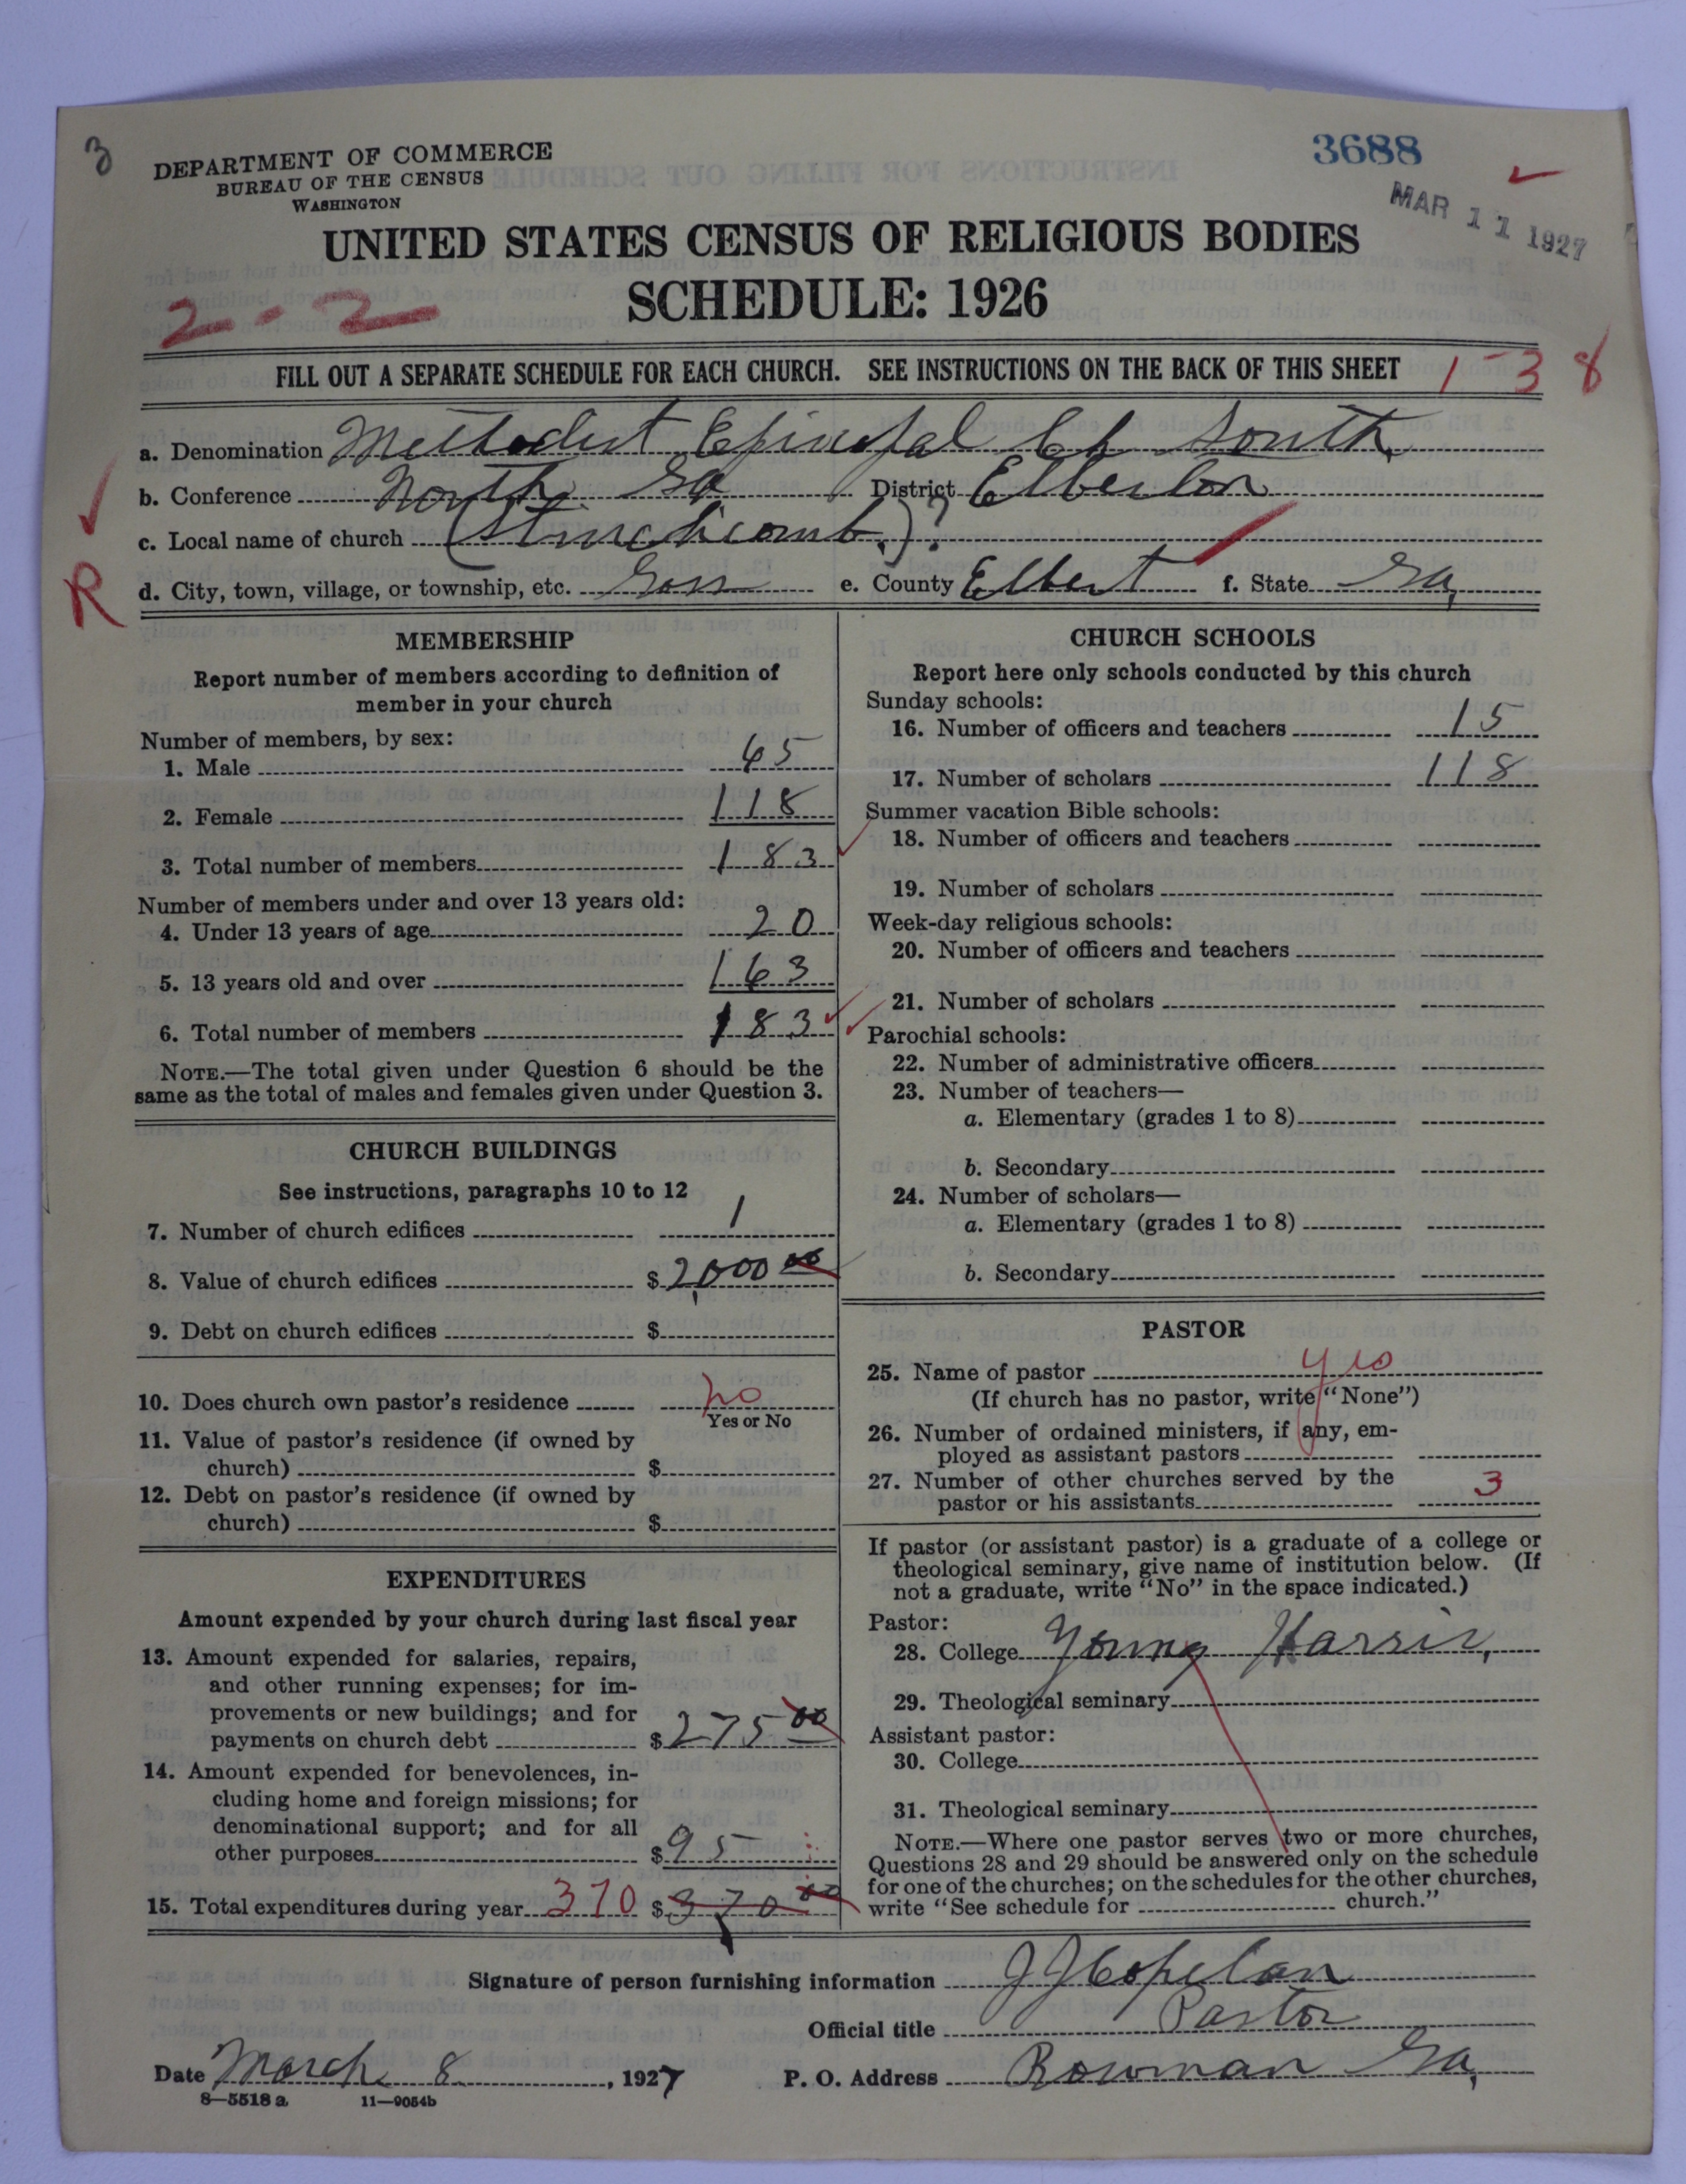 3
3688
DEPARTMENT OF COMMERCE
BUREAU OF THE CENSUS
WASHINGTON
MAR 11 1927
UNITED STATES CENSUS OF RELIGIOUS BODIES
SCHEDULE: 1926
2 - 2
FILL OUT A SEPARATE SCHEDULE FOR EACH CHURCH. SEE INSTRUCTIONS ON THE BACK OF THIS SHEET
1-38
a. Denomination Methodist Episcopal Ch South,
b. Conference North Ga District Elberton
c. Local name of church (Stinchcomb.)?
R
d. City, town, village, or township, etc. Goss e. County Elbert f. State Ga,
MEMBERSHIP
Report number of members according to definition of
member in your church
Number of members, by sex:
1. Male 65
2. Female 118
3. Total number of members 183
Number of members under and over 13 years old:
4. Under 13 years of age 20
5. 13 years old and over 163
6. Total number of members 183
NOTE.—The total given under Question 6 should be the
same as the total of males and females given under Question 3.
CHURCH BUILDINGS
See instructions, paragraphs 10 to 12
7. Number of church edifices 1
8. Value of church edifices $2,000 00
9. Debt on church edifices $
10. Does church own pastor's residence no
Yes or No
11. Value of pastor's residence (if owned by
church) $
12. Debt on pastor's residence (if owned by
church) $
EXPENDITURES
Amount expended by your church during last fiscal year
13. Amount expended for salaries, repairs,
and other running expenses; for im-
provements or new buildings; and for
payments on church debt $275 00
14. Amount expended for benevolences, in-
cluding home and foreign missions; for
denominational support; and for all
other purposes $95
15. Total expenditures during year 370 $370 00
CHURCH SCHOOLS
Report here only schools conducted by this church
Sunday schools:
16. Number of officers and teachers 15
17. Number of scholars 118
Summer vacation Bible schools:
18. Number of officers and teachers
19. Number of scholars
Week-day religious schools:
20. Number of officers and teachers
21. Number of scholars
Parochial schools:
22. Number of administrative officers
23. Number of teachers—
a. Elementary (grades 1 to 8)
b. Secondary
24. Number of scholars—
a. Elementary (grades 1 to 8)
b. Secondary
PASTOR
25. Name of pastor yes
(If church has no pastor, write "None")
26. Number of ordained ministers, if any, em-
ployed as assistant pastors
27. Number of other churches served by the
pastor or his assistants 3
If pastor (or assistant pastor) is a graduate of a college or
theological seminary, give name of institution below. (If
not a graduate, write "No" in the space indicated.)
Pastor:
28. College Young Harris,
29. Theological seminary
Assistant pastor:
30. College
31. Theological seminary
NOTE.—Where one pastor serves two or more churches,
Questions 28 and 29 should be answered only on the schedule
for one of the churches; on the schedules for the other churches,
write "See schedule for church."
Signature of person furnishing information J J Copelan
Official title Pastor
Date March 8, 1927 P. O. Address Bowman Ga,
8—5518 a 11—9054b